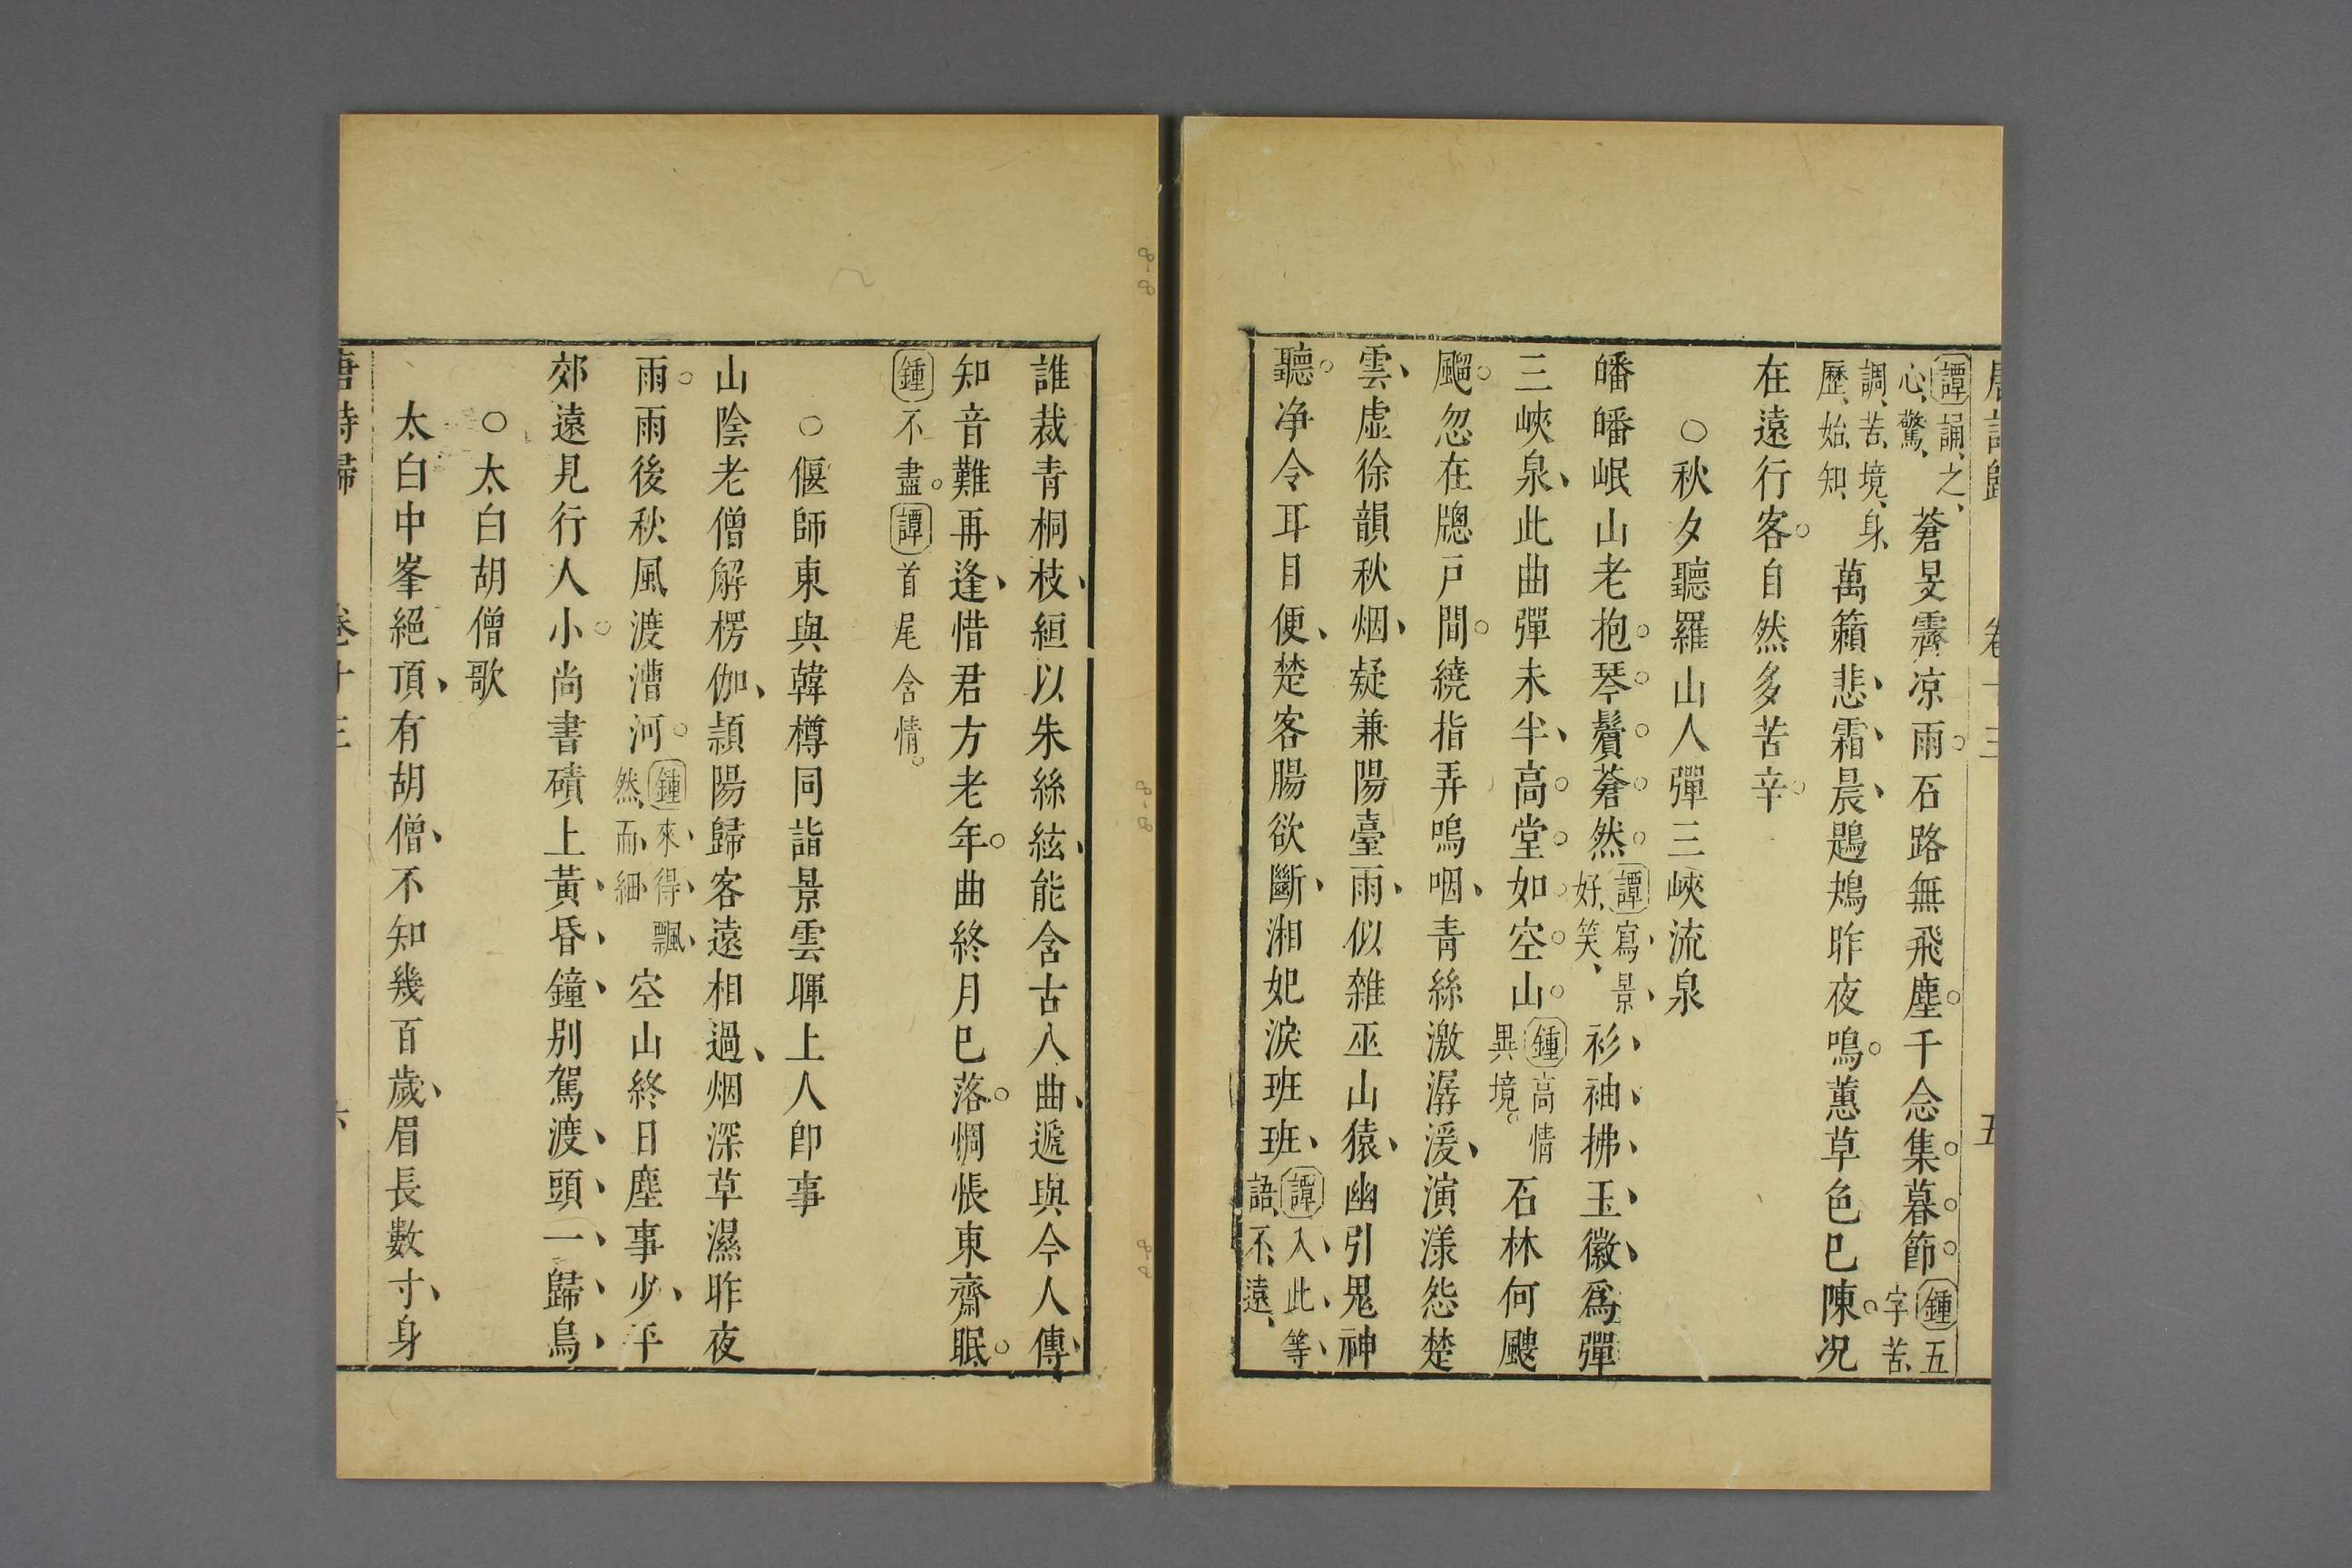 唐詩歸 卷十三 五
譚誦之心驚蒼旻霽凉雨石路無飛塵千念集暮節鍾五字苦
調苦境身歷始知萬籟悲霜晨鶗鴂昨夜鳴蕙草色已陳况
在遠行客自然多苦辛
○秋夕聽羅山人彈三峽流泉
皤皤岷山老抱琴鬢蒼然譚寫景好笑衫袖拂玉徽爲彈
三峽泉此曲彈未半高堂如空山鍾高情異境石林何颼
飀忽在牕戸間繞指弄嗚咽青絲激潺湲演漾怨楚
雲虛徐韻秋烟疑兼陽臺雨似雜巫山猿幽引鬼神
聽净令耳目便楚客腸欲斷湘妃淚班班譚入此等語不遠
誰裁青桐枝絙以朱絲絃能含古人曲遞與今人傳
知音難再逢惜君方老年曲終月已落惆悵東齋眠
鍾不盡譚首尾含情
○偃師東與韓樽同詣景雲暉上人卽事
山陰老僧解楞伽頴陽歸客遠相過烟深草濕昨夜
雨雨後秋風渡漕河鍾來得飄然而細空山終日塵事少平
郊遠見行人小尚書磧上黃昏鐘別駕渡頭一歸鳥
○太白胡僧歌
太白中峯絕頂有胡僧不知幾百歲眉長數寸身
唐詩歸 卷十三 六